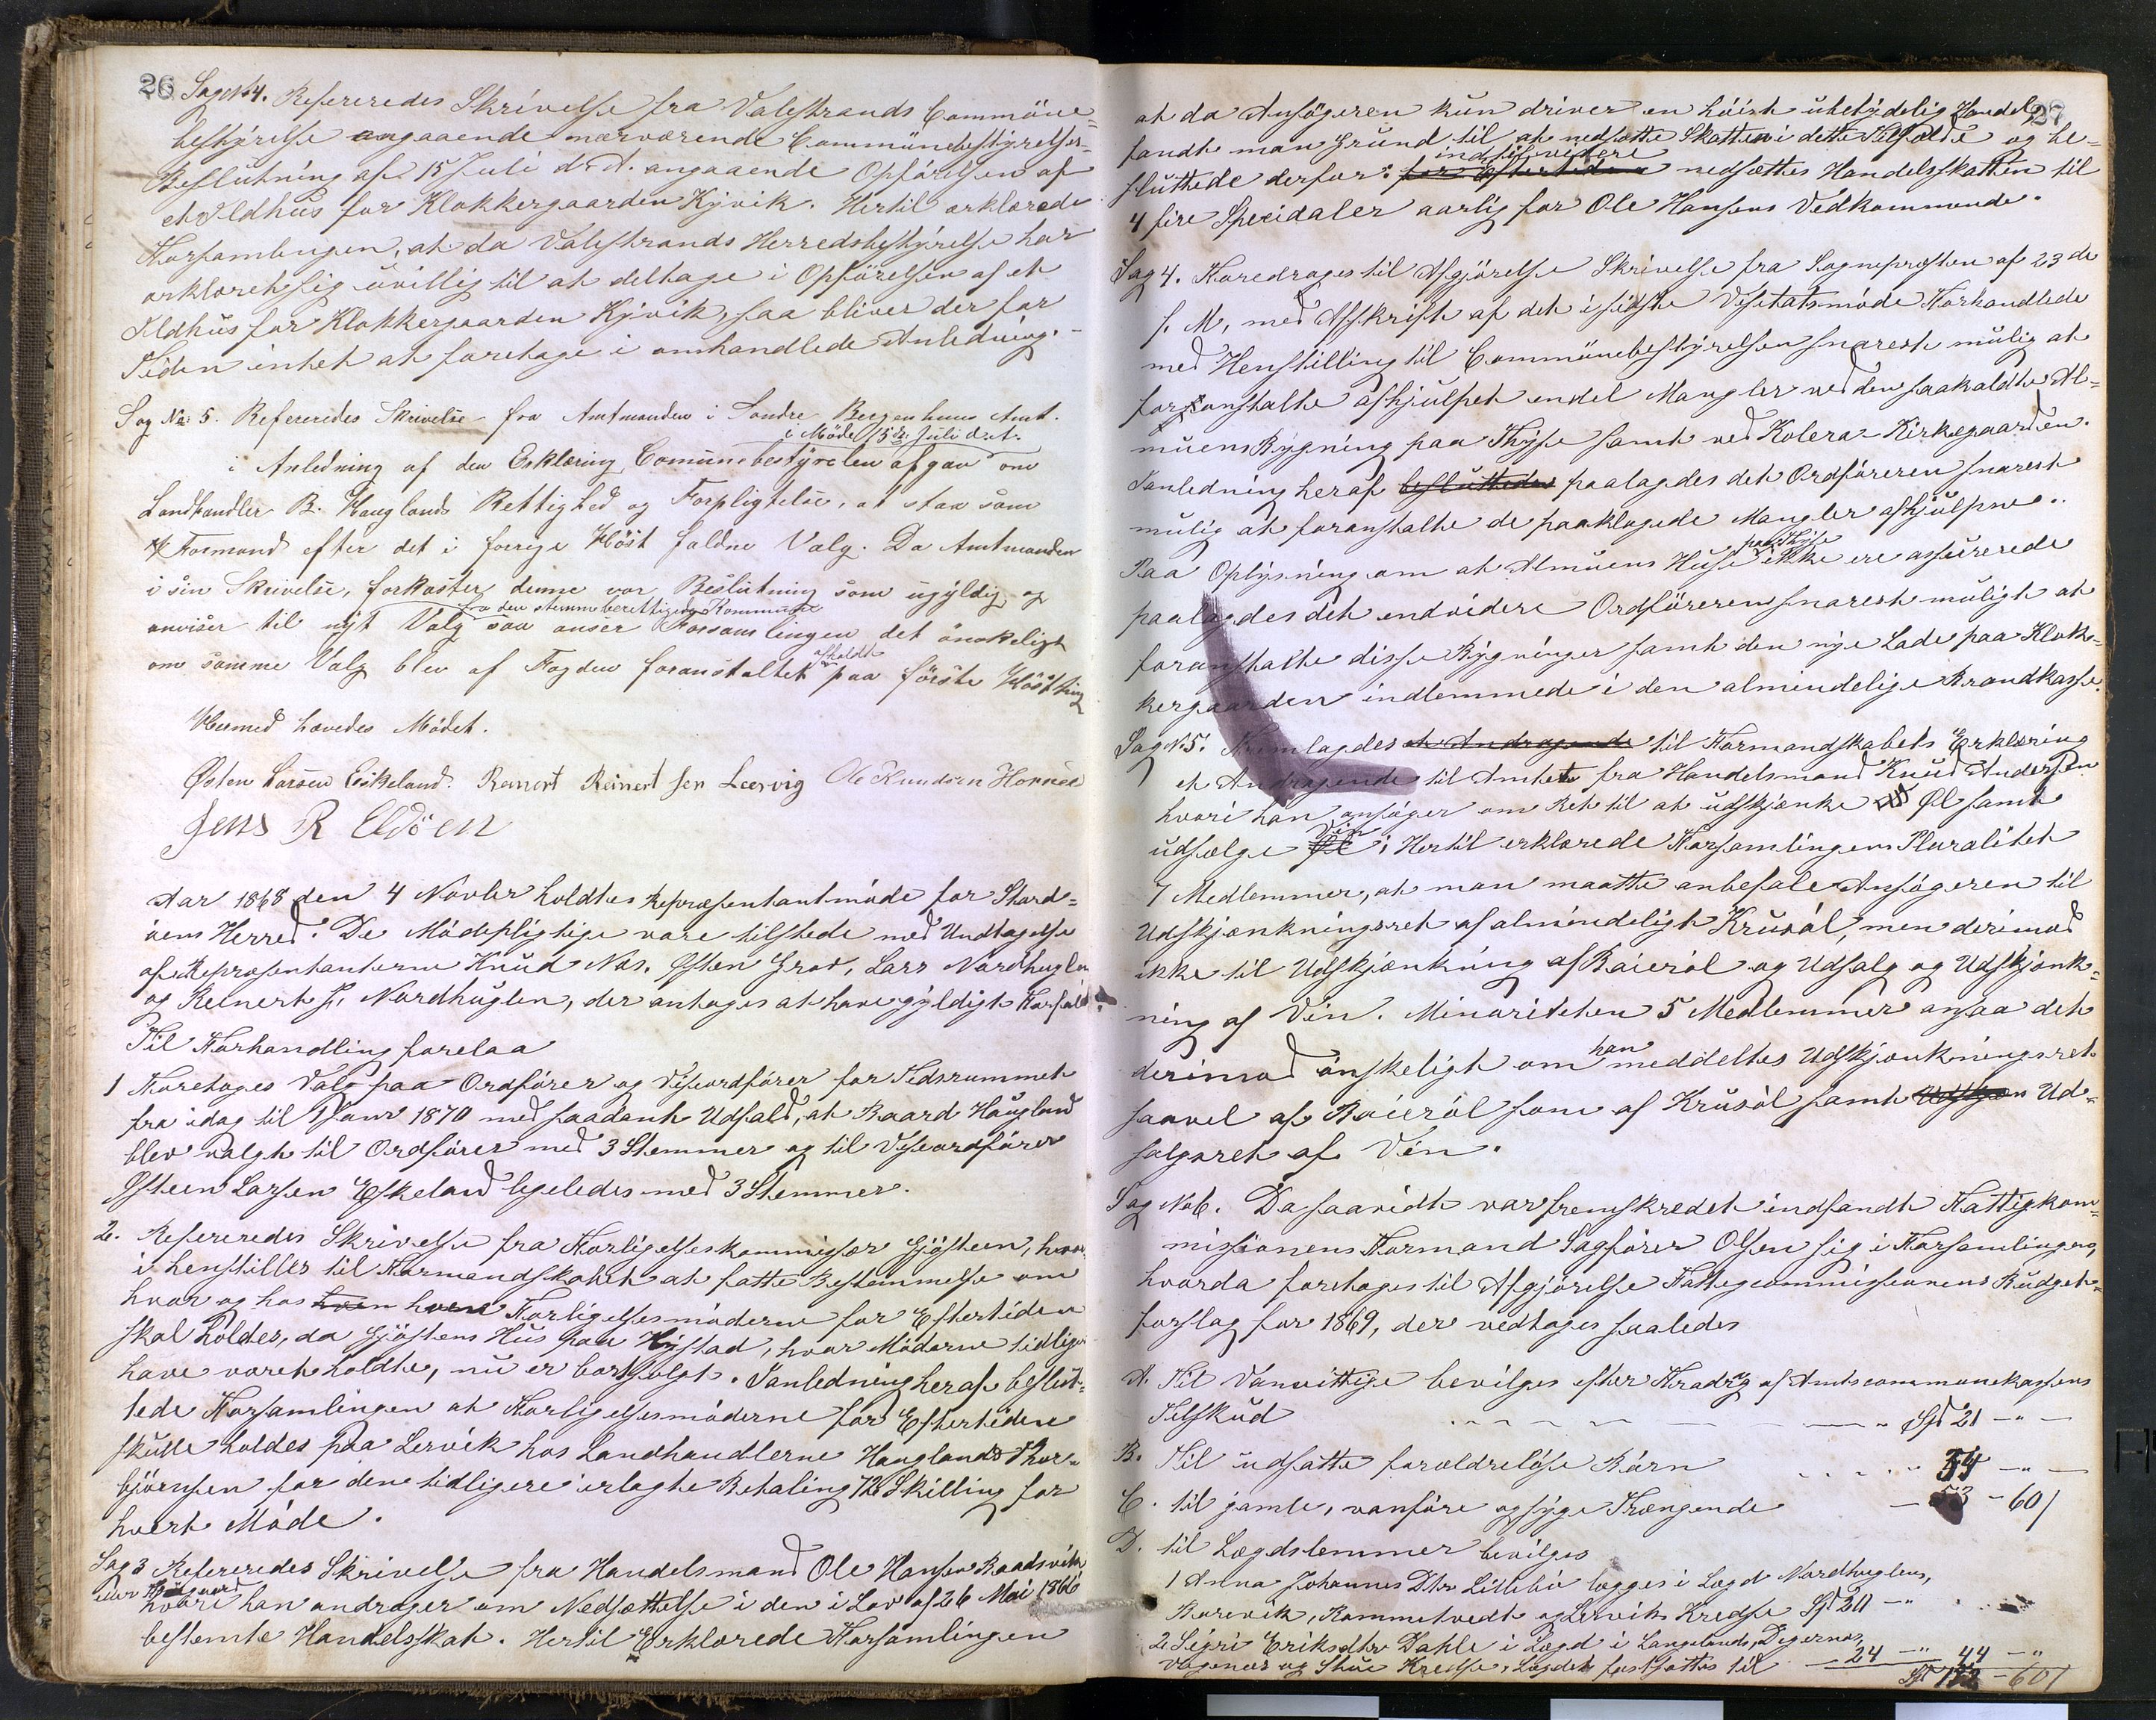 26
Sag No 4. Refereredes Skrivelse fra Valestrands Commüne=
bestyrelse angaaende nærværende Commünebestyrelses-
Beslutning af 15 Juli d. A. angaaende Opförelsen af
et Ildhus for Klokkergaarden Kyvik. Hertil erklærede
Forsamlingen, at da Valestrands Herredsbestyrelse har
erklæret sig uvillig til at deltage i Opförelsen af et
Ildhus for Klokkergaarden Kyvik, saa bliver der for
Tiden intet at foretage i omhandlede Anledning.-
Sag No. 5. Refereredes Skrivelse fra Amtmanden i Söndre Bergenhuus Amt.
i Möde 15de Juli d. A.
i Anledning af den Erklæring Comunebestyrelen afgav om
Landhandler B. Hauglands Rettighed og Forpligtelse, at staa som
Formand efter det i forrige Höst faldne Valg. Da Amtmanden
i sin Skrivelse, forkaster denne vor Beslutning som ugyldig og
fra den stemmeberettigede Kommune
anviser til nyt Valg saa anser Forsamlingen det önskeligt
afholdt
om samme Valg blev af Fogden foranstaltet paa förste Hösthing
Hermed hævedes Mödet.
Østen Larsen Eskeland. Reinert Reinertsen Leervig Ole Knudsen Hornes
Jens R Eldöen
Aar 1868 den 4 Novbr holdtes Repræsentantmöde for Stord=
öens Herred. De Mödepligtige vare tilstede med Undtagelse
af Repræsentanterne Knud Næs, Östen Grov, Lars Nordhuglen
og Reinert P. Nordhuglen, der antoges at have gyldigt Forfald.
Til Forhandling forelaa
1 Foretoges Valg paa Ordförer og Viseordförer for Tidsrummet
fra idag til 1 Janr 1870 med saadant Udfald, at Baard Haugland
blev valgt til Ordförer med 3 Stemmer og til Viseordförer
Østeen Larsen Eskeland ligeledes med 3 Stemmer.
2. Refereredes Skrivelse fra Forligelseskommissær Gjösteen, hvor-
i henstilles til Formandskabet at fatte Bestemmelse om
hvor og hos hvem Forligelsesmöderne for Eftertiden
skal holdes, da Gjöstens Hus paa Hystad, hvor Möderne tidligere
have været holdte, nu er bortsolgt. I anledning heraf beslut=
tede Forsamlingen at Forligelsesmöderne for Eftertiden
skulle holdes paa Lervik hos Landhandlerne Haugland & Thor=
björnsen for den tidligere erlagte Betaling 72 Skilling for
hvert Möde.
Sag 3 Refereredes Skrivelse fra Handelsmand Ole Hansen Baadsvik
hvori han andrager om Nedsættelse i den i Lov af 26 Mai 1866
bestemte Handelsskat. Hertil Erklærede Forsamlingen
27
at da Ansögeren kun driver en höist ubetydelig Handel,
fandt man Grund til at nedsætte Skatten i dette Tilfælde og be=
indtil videre
sluttede derfor: for Eftertiden nedsættes Handelsskatten til
4 fire Specidaler aarlig for Ole Hansens Vedkommende.
Sag 4. Foredroges til Afgjörelse Skrivelse fra Sognepræsten af 23de
f. M, med Afskrift af det i sidste Visitatsmöde Forhandlede
med Henstilling til Commünebestyrelsen snarest mulig at
foranstalte afhjulpet endel Mangler ved den saakaldte Al=
muens Bygning paa Thyse samt ved Kolera-Kirkegaarden.
I anledning heraf besluttedes paalagdes det Ordföreren snarest
mulig at foranstalte de paaklagede Mangler afhjulpne.
paa Thyse
Paa Oplysning om at Almuens Huse ikke ere assurerede
paalagdes det endvidere Ordföreren snarest muligt at
foranstalte disse Bygninger samt den nye Lade paa Klok=
kergaarden indlemmede i den almindelige Brandkasse.
Sag N. 5. Fremlagdes et Andragende til Formandskabets Erklæring
et Andragende til Amtet fra Handelsmand Knud Andersen
hvori han ansöger om Ret til at udskjænke Øl samt
Vin
udsælge Øl; Hertil erklærede Forsamlingens Pluralitet
7 Medlemmer, at man maatte anbefale Ansögeren til
Udskjænkningsret af almindeligt Krusöl, men derimod
ikke til Udskjænkning af Baieröl og Udsalg og Udskjænk=
ning af Vin. Minoriteten 5 Medlemmer ansaa det
han
derimod önskeligt om meddeltes Udskjænkningsret
saavel af Baieröl som af Krusöl samt Udskjæn Ud=
salgsret af Vin.
Sag No 6. Da saavidt var fremskredet indfandt Fattigkom=
missionens Formand Sagförer Olsen sig i Forsamlingen,
hvorda foretoges til Afgjörelse Fattigcommissionens Budget=
forslag for 1869, der vedtoges saaledes
A. Til Vanvittige bevilges efter Fradrag af Amtscommunekassens
Tilskud Spd 21 - " -
B. Til udsatte forældrelöse Börn 54 - " -
C. til gamle, vanföre og syge Trængende - 53 - 60 /
D. til Lægdslemmer bevilges
1 Anna Johannes Dtr Litlebö lægges i Lægd Nordhuglens,
Børevik, Rommetvedt og Lerviks Kredse Spd 20 - "
2 Sigri Eriksdtr Dahle i Lægd i Langelands, Digernæs,
Vagenes og Stue Kredse, Lægdet fastsættes til - 24 - " 44 - "
Spd 172 - 60 /